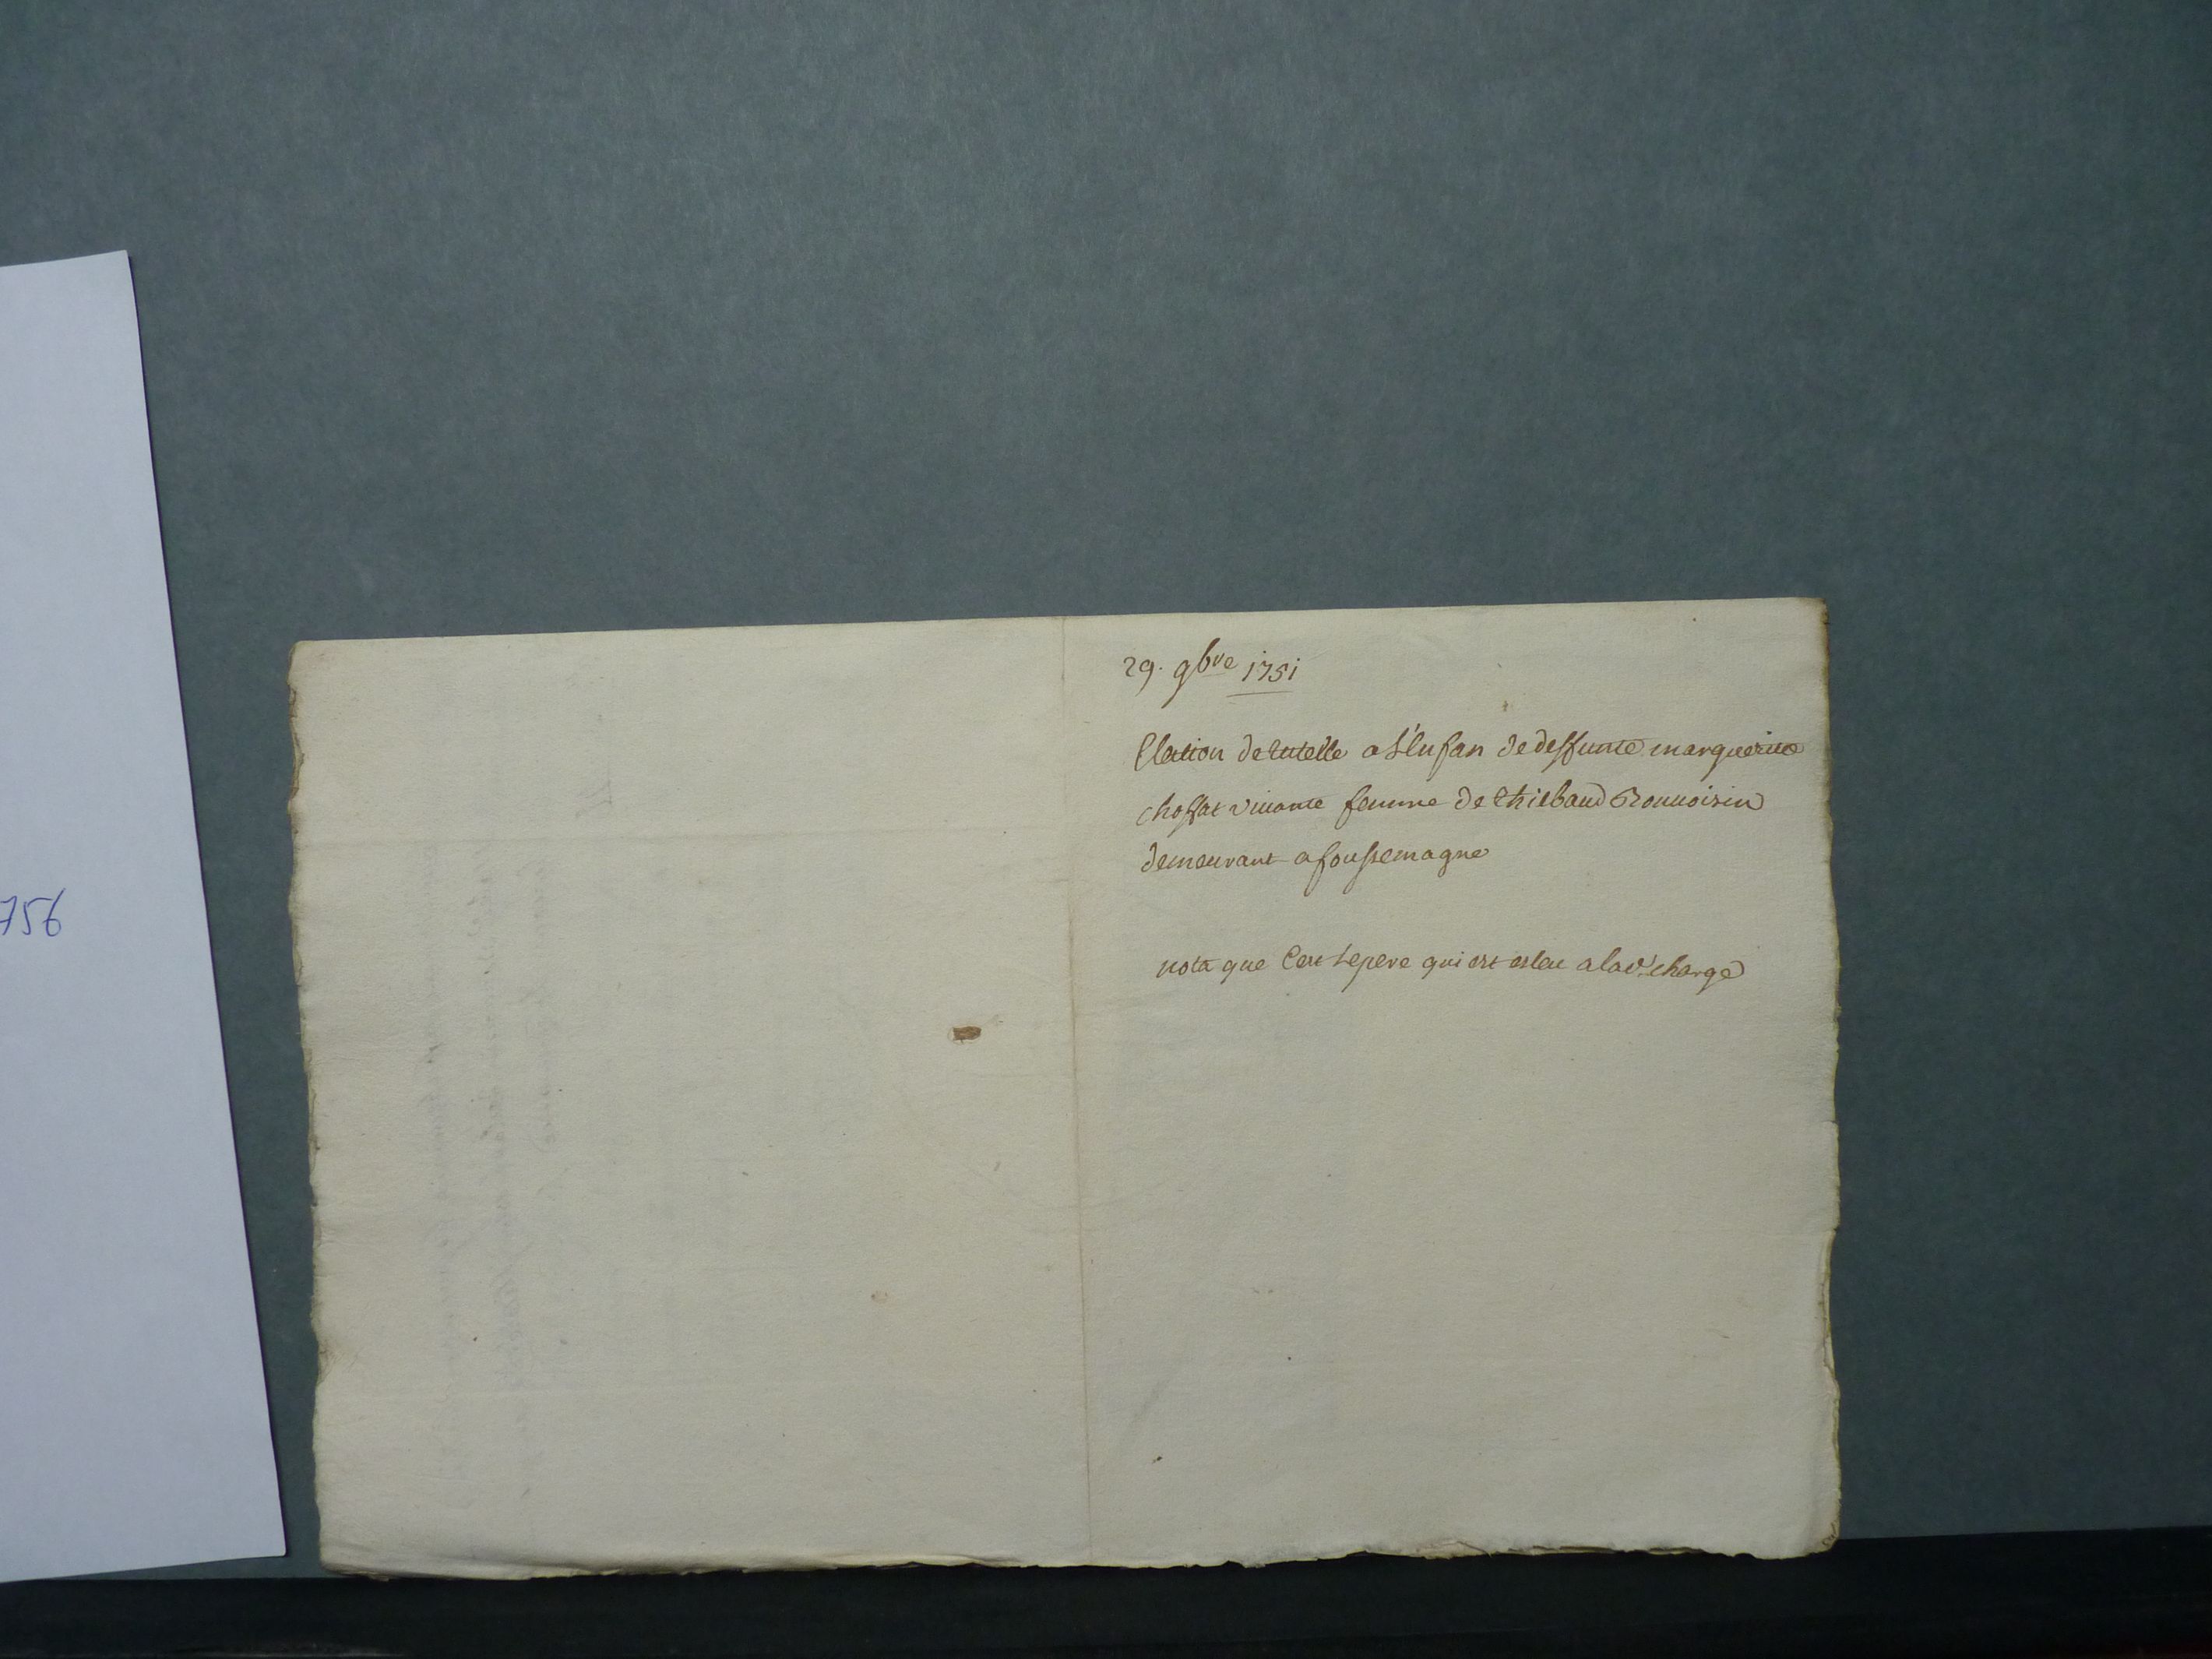 756
29. 9bre 1751
Election de tutelle a l'enfan de deffunte marguerite
choffat vivante femme de thiebaud Bonvoisin
demeurant a foussemagne
nota que C'est le pere qui est esleu a lad. charge